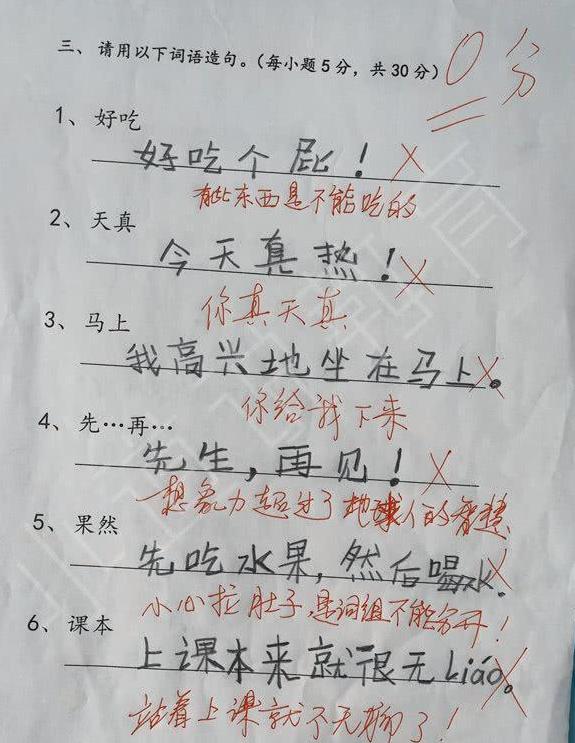 三、请用以下词语造句。(每小题5分，共30分)
0分
1、好吃
好吃个屁！
有些东西是不能吃的
2、天真
今天真热！
你真天真
3、马上
我高兴地坐在马上。
你给我下来
4、先…再…
先生，再见！
想象力超过了地球人的智慧
5、果然
先吃水果，然后喝水.
小心拉肚子,是词组不能分开！
6、课本
上课本来就很无Liáo。
站着上课就不无聊了！